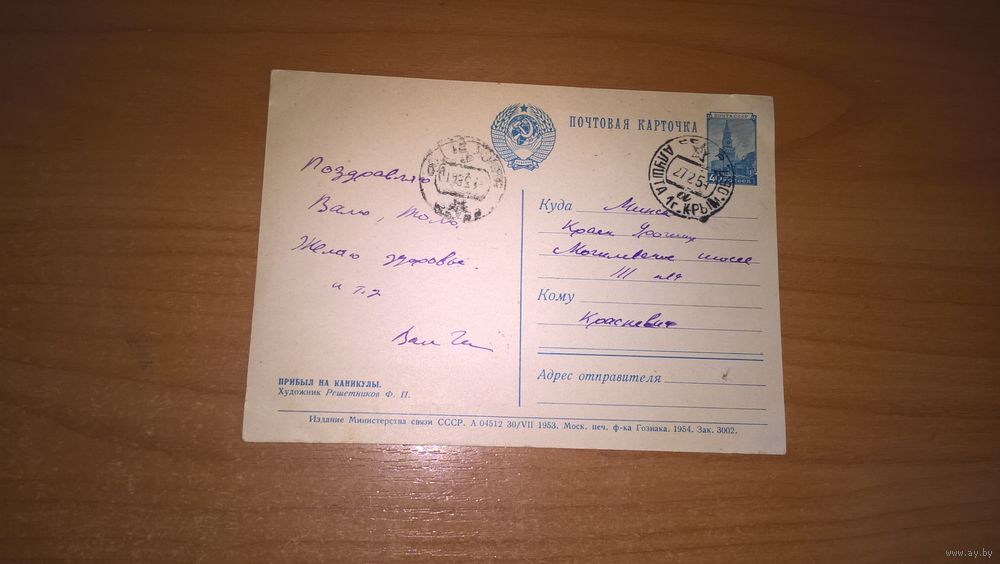 ПОЧТОВАЯ КАРТОЧКА
ПОЧТА СССР
Поздравляю
Валю, Толю.
Желаю здоровья.
и т.д
Куда Минск
Красн Урочище
Могилевское шоссе
III
Кому
Красневич
Адрес отправителя
АЛУШТА КРЫМ. ОБЛ.
ПРИБЫЛ НА КАНИКУЛЫ.
Художник Решетников Ф. П.
Издание Министерства связи СССР. А 04512 30/VII 1953. Моск. печ. ф-ка Гознака. 1954. Зак. 3002.
www.ay.by